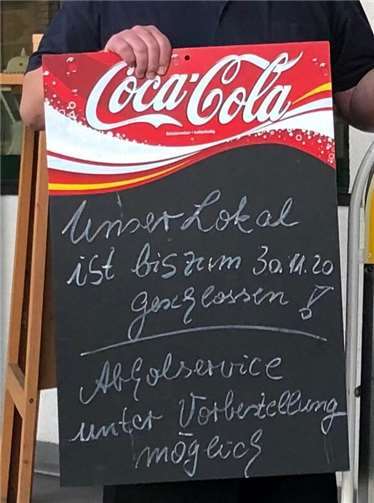 Coca-Cola
Unser Lokal
ist bis zum 30.11.20
geschlossen!
Abholservice
unter Vorbestellung
möglich